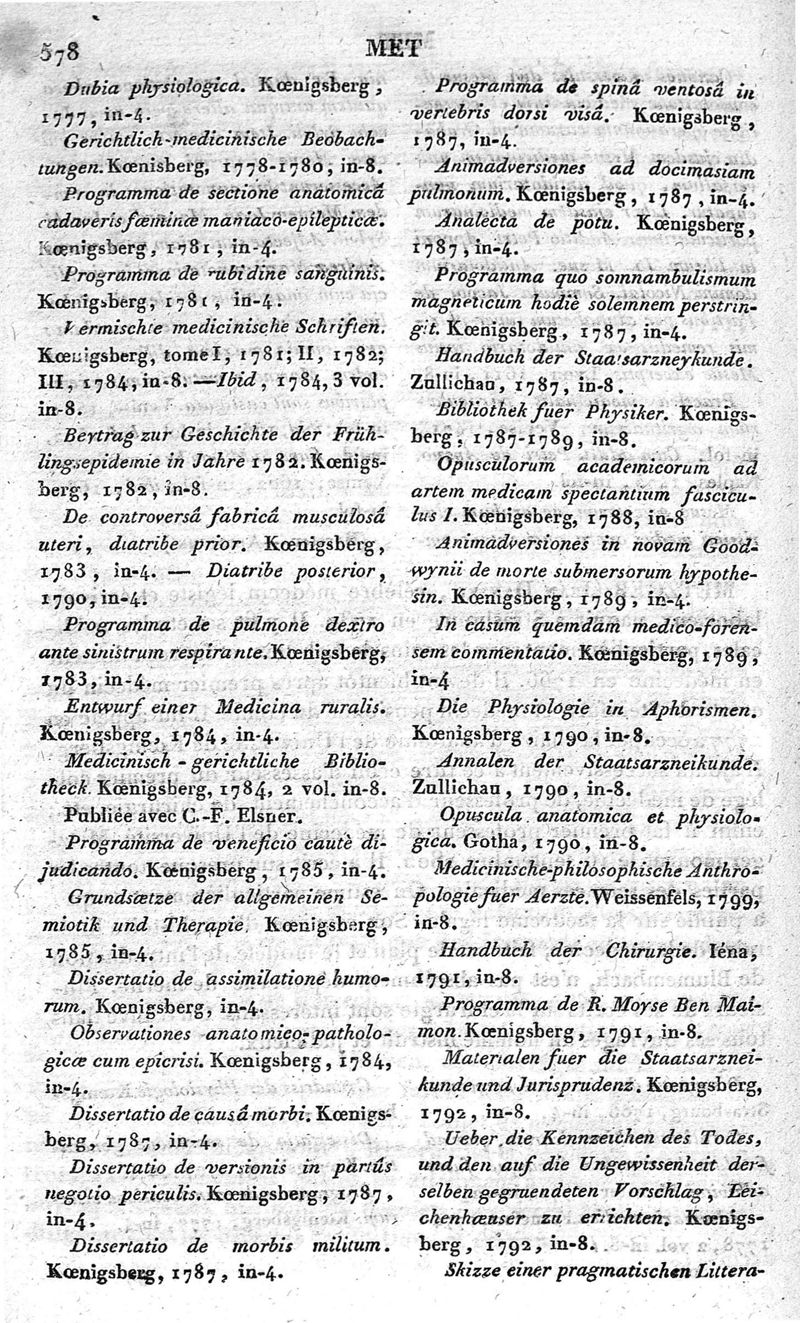 578
MET
Dubia physiologica. Kœnigsberg,
1777, in-4.
Gerichtlich-medicinische Beobach-
tungen. Kœnisberg, 1778-1780, in-8.
Programma de sectione anatomicâ
cadaveris fœminæ maniaco-epilepticæ.
Kœnigsberg, 1781, in-4.
Programma de rubidine sanguinis.
Kœnigsberg, 1781, in-4.
Vermischte medicinische Schriften.
Kœnigsberg, tome I, 1781; II, 1782;
III, 1784, in-8. — Ibid, 1784, 3 vol.
in-8.
Beytrag zur Geschichte der Früh-
lingsepidemie in Jahre 1782. Kœnigs-
berg, 1782, in-8.
De controversâ fabricâ musculosâ
uteri, diatribe prior. Kœnigsberg,
1783, in-4. — Diatribe posterior,
1790, in-4.
Programma de pulmone dextro
ante sinistrum respirante. Kœnigsberg,
1783, in-4.
Entwurf einer Medicina ruralis.
Kœnigsberg, 1784, in-4.
Medicinisch-gerichtliche Biblio-
theck. Kœnigsberg, 1784, 2 vol. in-8.
Publiée avec C.-F. Elsner.
Programma de veneficio cautè di-
judicando. Kœnigsberg, 1785, in-4.
Grundsætze der allgemeinen Se-
miotik und Therapie. Kœnigsberg,
1785, in-4.
Dissertatio de assimilatione humo-
rum. Kœnigsberg, in-4.
Observationes anatomico-patholo-
gicæ cum epicrisi. Kœnigsberg, 1784,
in-4.
Dissertatio de causâ morbi. Kœnigs-
berg, 1787, in-4.
Dissertatio de versionis in partûs
negotio periculis. Kœnigsberg, 1787,
in-4.
Dissertatio de morbis militum.
Kœnigsberg, 1787, in-4.
Programma de spinâ ventosâ in
vertebris dorsi visâ. Kœnigsberg,
1787, in-4.
Animadversiones ad docimasiam
pulmonum. Kœnigsberg, 1787, in-4.
Analecta de potu. Kœnigsberg,
1787, in-4.
Programma quo somnambulismum
magneticum hodiè solemnem perstrin-
git. Kœnigsberg, 1787, in-4.
Handbuch der Staatsarzneykunde.
Zullichau, 1787, in-8.
Bibliothek fuer Physiker. Kœnigs-
berg, 1787-1789, in-8.
Opusculorum academicorum ad
artem medicam spectantium fascicu-
lus I. Kœnigsberg, 1788, in-8
Animadversiones in novam Good-
wynii de morte submersorum hypothe-
sin. Kœnigsberg, 1789, in-4.
In casum quemdam medico-foren-
sem commentatio. Kœnigsberg, 1789,
in-4
Die Physiologie in Aphorismen.
Kœnigsberg, 1790, in-8.
Annalen der Staatsarzneikunde.
Zullichau, 1790, in-8.
Opuscula anatomica et physiolo-
gica. Gotha, 1790, in-8.
Medicinische-philosophische Anthro-
pologie fuer Aerzte. Weissenfels, 1799,
in-8.
Handbuch der Chirurgie. Iéna,
1791, in-8.
Programma de R. Moyse Ben Mai-
mon. Kœnigsberg, 1791, in-8.
Materialen fuer die Staatsarznei-
kunde und Jurisprudenz. Kœnigsberg,
1792, in-8.
Ueber die Kennzeichen des Todes,
und den auf die Ungewissenheit der-
selben gegruendeten Vorschlag, Lei-
chenhæuser zu errichten. Kœnigs-
berg, 1792, in-8.
Skizze einer pragmatischen Littera-